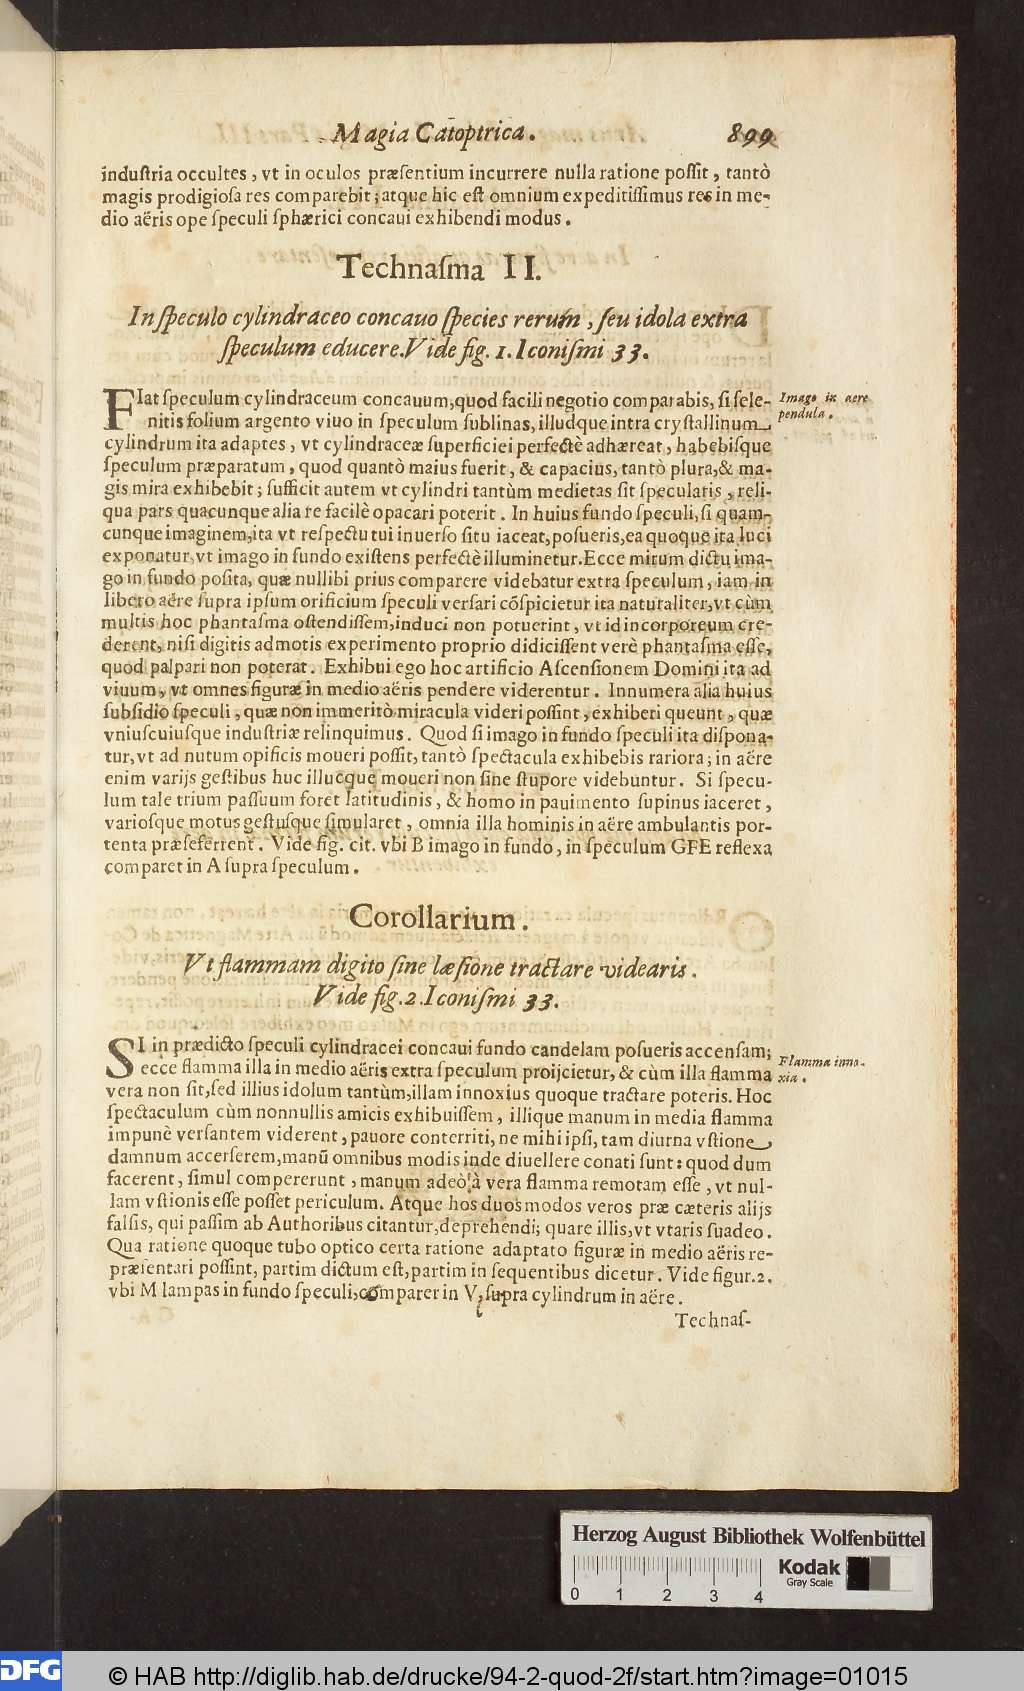 Magia Catoptrica. 899
induſtria occultes, vt in oculos præſentium incurrere nulla ratione poſſit, tantò
magis prodigioſa res comparebit; atque hic eſt omnium expeditiſſimus res in me-
dio aëris ope ſpeculi ſphærici concaui exhibendi modus.
Technaſma II.
In ſpeculo cylindraceo concauo ſpecies rerum, ſeu idola extra
ſpeculum educere. Vide fig. 1. Iconiſmi 33.
FIat ſpeculum cylindraceum concauum, quod facili negotio comparabis, ſi ſele-
nitis folium argento viuo in ſpeculum ſublinas, illudque intra cryſtallinum
cylindrum ita adaptes, vt cylindraceæ ſuperficiei perfectè adhæreat, habebiſque
ſpeculum præparatum, quod quantò maius fuerit, & capacius, tantò plura, & ma-
gis mira exhibebit; ſufficit autem vt cylindri tantùm medietas ſit ſpecularis, reli-
qua pars quacunque alia re facilè opacari poterit. In huius fundo ſpeculi, ſi quam-
cunque imaginem, ita vt reſpectu tui inuerſo ſitu iaceat, poſueris, ea quoque ita luci
exponatur, vt imago in fundo exiſtens perfectè illuminetur. Ecce mirum dictu ima-
go in fundo poſita, quæ nullibi prius comparere videbatur extra ſpeculum, iam in
libero aëre ſupra ipſum orificium ſpeculi verſari cõſpicietur ita naturaliter, vt cùm
multis hoc phantaſma oſtendiſſem, induci non potuerint, vt id incorporeum cre-
derent, niſi digitis admotis experimento proprio didiciſſent verè phantaſma eſſe,
quod palpari non poterat. Exhibui ego hoc artificio Aſcenſionem Domini ita ad
viuum, vt omnes figuræ in medio aëris pendere viderentur. Innumera alia huius
ſubſidio ſpeculi, quæ non immeritò miracula videri poſſint, exhiberi queunt, quæ
vniuſcuiuſque induſtriæ relinquimus. Quod ſi imago in fundo ſpeculi ita diſpona-
tur, vt ad nutum opificis moueri poſſit, tantò ſpectacula exhibebis rariora; in aëre
enim varijs geſtibus huc illucque moueri non ſine ſtupore videbuntur. Si ſpecu-
lum tale trium paſſuum foret latitudinis, & homo in pauimento ſupinus iaceret,
varioſque motus geſtuſque ſimularet, omnia illa hominis in aëre ambulantis por-
tenta præſeferrent. Vide fig. cit. vbi B imago in fundo, in ſpeculum GFE reflexa
comparet in A ſupra ſpeculum.
Imago in aere
pendula.
Corollarium.
Vt flammam digito ſine læſione tractare videaris.
Vide fig. 2. Iconiſmi 33.
SI in prædicto ſpeculi cylindracei concaui fundo candelam poſueris accenſam;
ecce flamma illa in medio aëris extra ſpeculum proijcietur, & cùm illa flamma
vera non ſit, ſed illius idolum tantùm, illam innoxius quoque tractare poteris. Hoc
ſpectaculum cùm nonnullis amicis exhibuiſſem, illique manum in media flamma
impunè verſantem viderent, pauore conterriti, ne mihi ipſi, tam diurna vſtione
damnum accerſerem, manũ omnibus modis inde diuellere conati ſunt: quod dum
facerent, ſimul compererunt, manum adeò à vera flamma remotam eſſe, vt nul-
lam vſtionis eſſe poſſet periculum. Atque hos duos modos veros præ cæteris alijs
falſis, qui paſſim ab Authoribus citantur, deprehendi; quare illis, vt vtaris ſuadeo.
Qua ratione quoque tubo optico certa ratione adaptato figuræ in medio aëris re-
præſentari poſſint, partim dictum eſt, partim in ſequentibus dicetur. Vide figur. 2.
vbi M lampas in fundo ſpeculi, comparer in V, ſupra cylindrum in aëre.
Flamma inno-
xia.
Technaſ-
Herzog August Bibliothek Wolfenbüttel
Kodak
Gray Scale
0 1 2 3 4
DFG © HAB http://diglib.hab.de/drucke/94-2-quod-2f/start.htm?image=01015